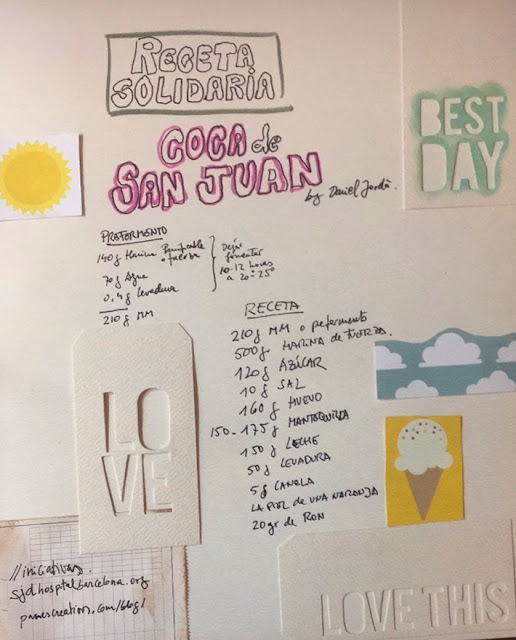 RECETA
SOLIDARIA
COCA de
SAN JUAN
by Daniel Jordà.
BEST
DAY
PREFERMENTO
140g Harina Panificable
o fuerza
70g Agua
0,4g Levadura
210g MM
Dejar
fomentar
10-12 horas
a 20-25°
RECETA
210g MM o prefermento
500g HARINA de FUERZA.
120g AZÚCAR
10g SAL
160g HUEVO
150-175g MANTEQUILLA
150g LECHE
50g LEVADURA
5g CANELA
LA PIEL DE UNA NARANJA
20gr de RON
LO
VE
//iniciativas.
sjdhospitalbarcelona.org
panescreativos.com/blog/
LOVE THIS